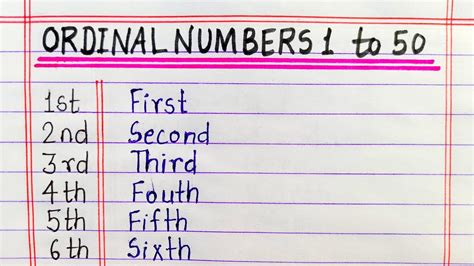 ORDINAL NUMBERS 1 to 50
1st First
2nd Second
3rd Third
4th Fouth
5th Fifth
6th Sixth